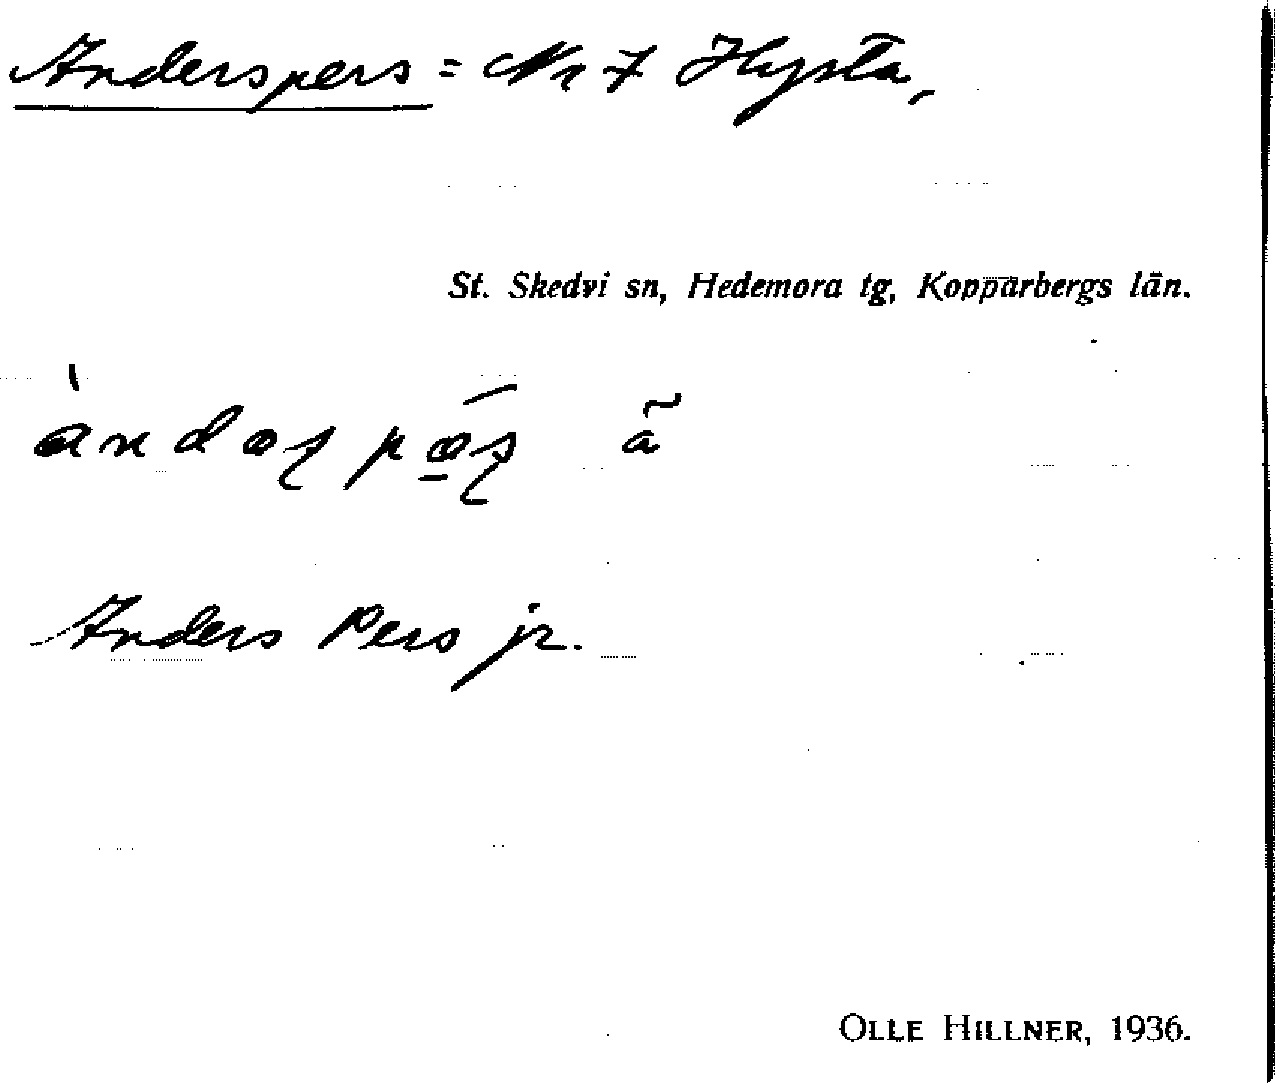 Anderspers = Nr 7 Hysta,
St. Skedvi sn, Hedemora tg, Kopparbergs län.
Anders Pers jr.
OLLE HILLNER, 1936.